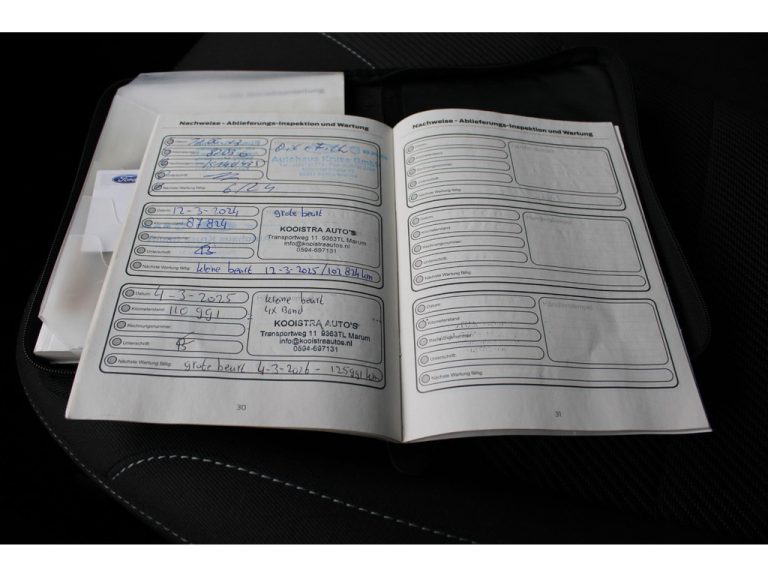 Ford
Nachweise - Ablieferungs-Inspektion und Wartung
Autohaus Kruse GmbH
Nächste Wartung fällig: 6/24
Datum: 12-3-2024
grote beurt
87824
KOOISTRA AUTO'S
Transportweg 11 9363TL Marum
info@kooistraautos.nl
0594-697131
Rechnungsnummer:
Unterschrift:
Nächste Wartung fällig: kleine beurt 12-3-2025/102824km
Datum: 4-3-2025
kleine beurt
4x Band
Kilometerstand: 110991
KOOISTRA AUTO'S
Transportweg 11 9363TL Marum
info@kooistraautos.nl
0594-697131
Rechnungsnummer:
Unterschrift:
Nächste Wartung fällig: grote beurt 4-3-2026 - 125991 km
30
Nachweise - Ablieferungs-Inspektion und Wartung
Datum:
Kilometerstand:
Rechnungsnummer:
Unterschrift:
Nächste Wartung fällig:
Datum:
Kilometerstand:
Rechnungsnummer:
Unterschrift:
Nächste Wartung fällig:
Datum:
Kilometerstand:
Rechnungsnummer:
Unterschrift:
Nächste Wartung fällig:
31